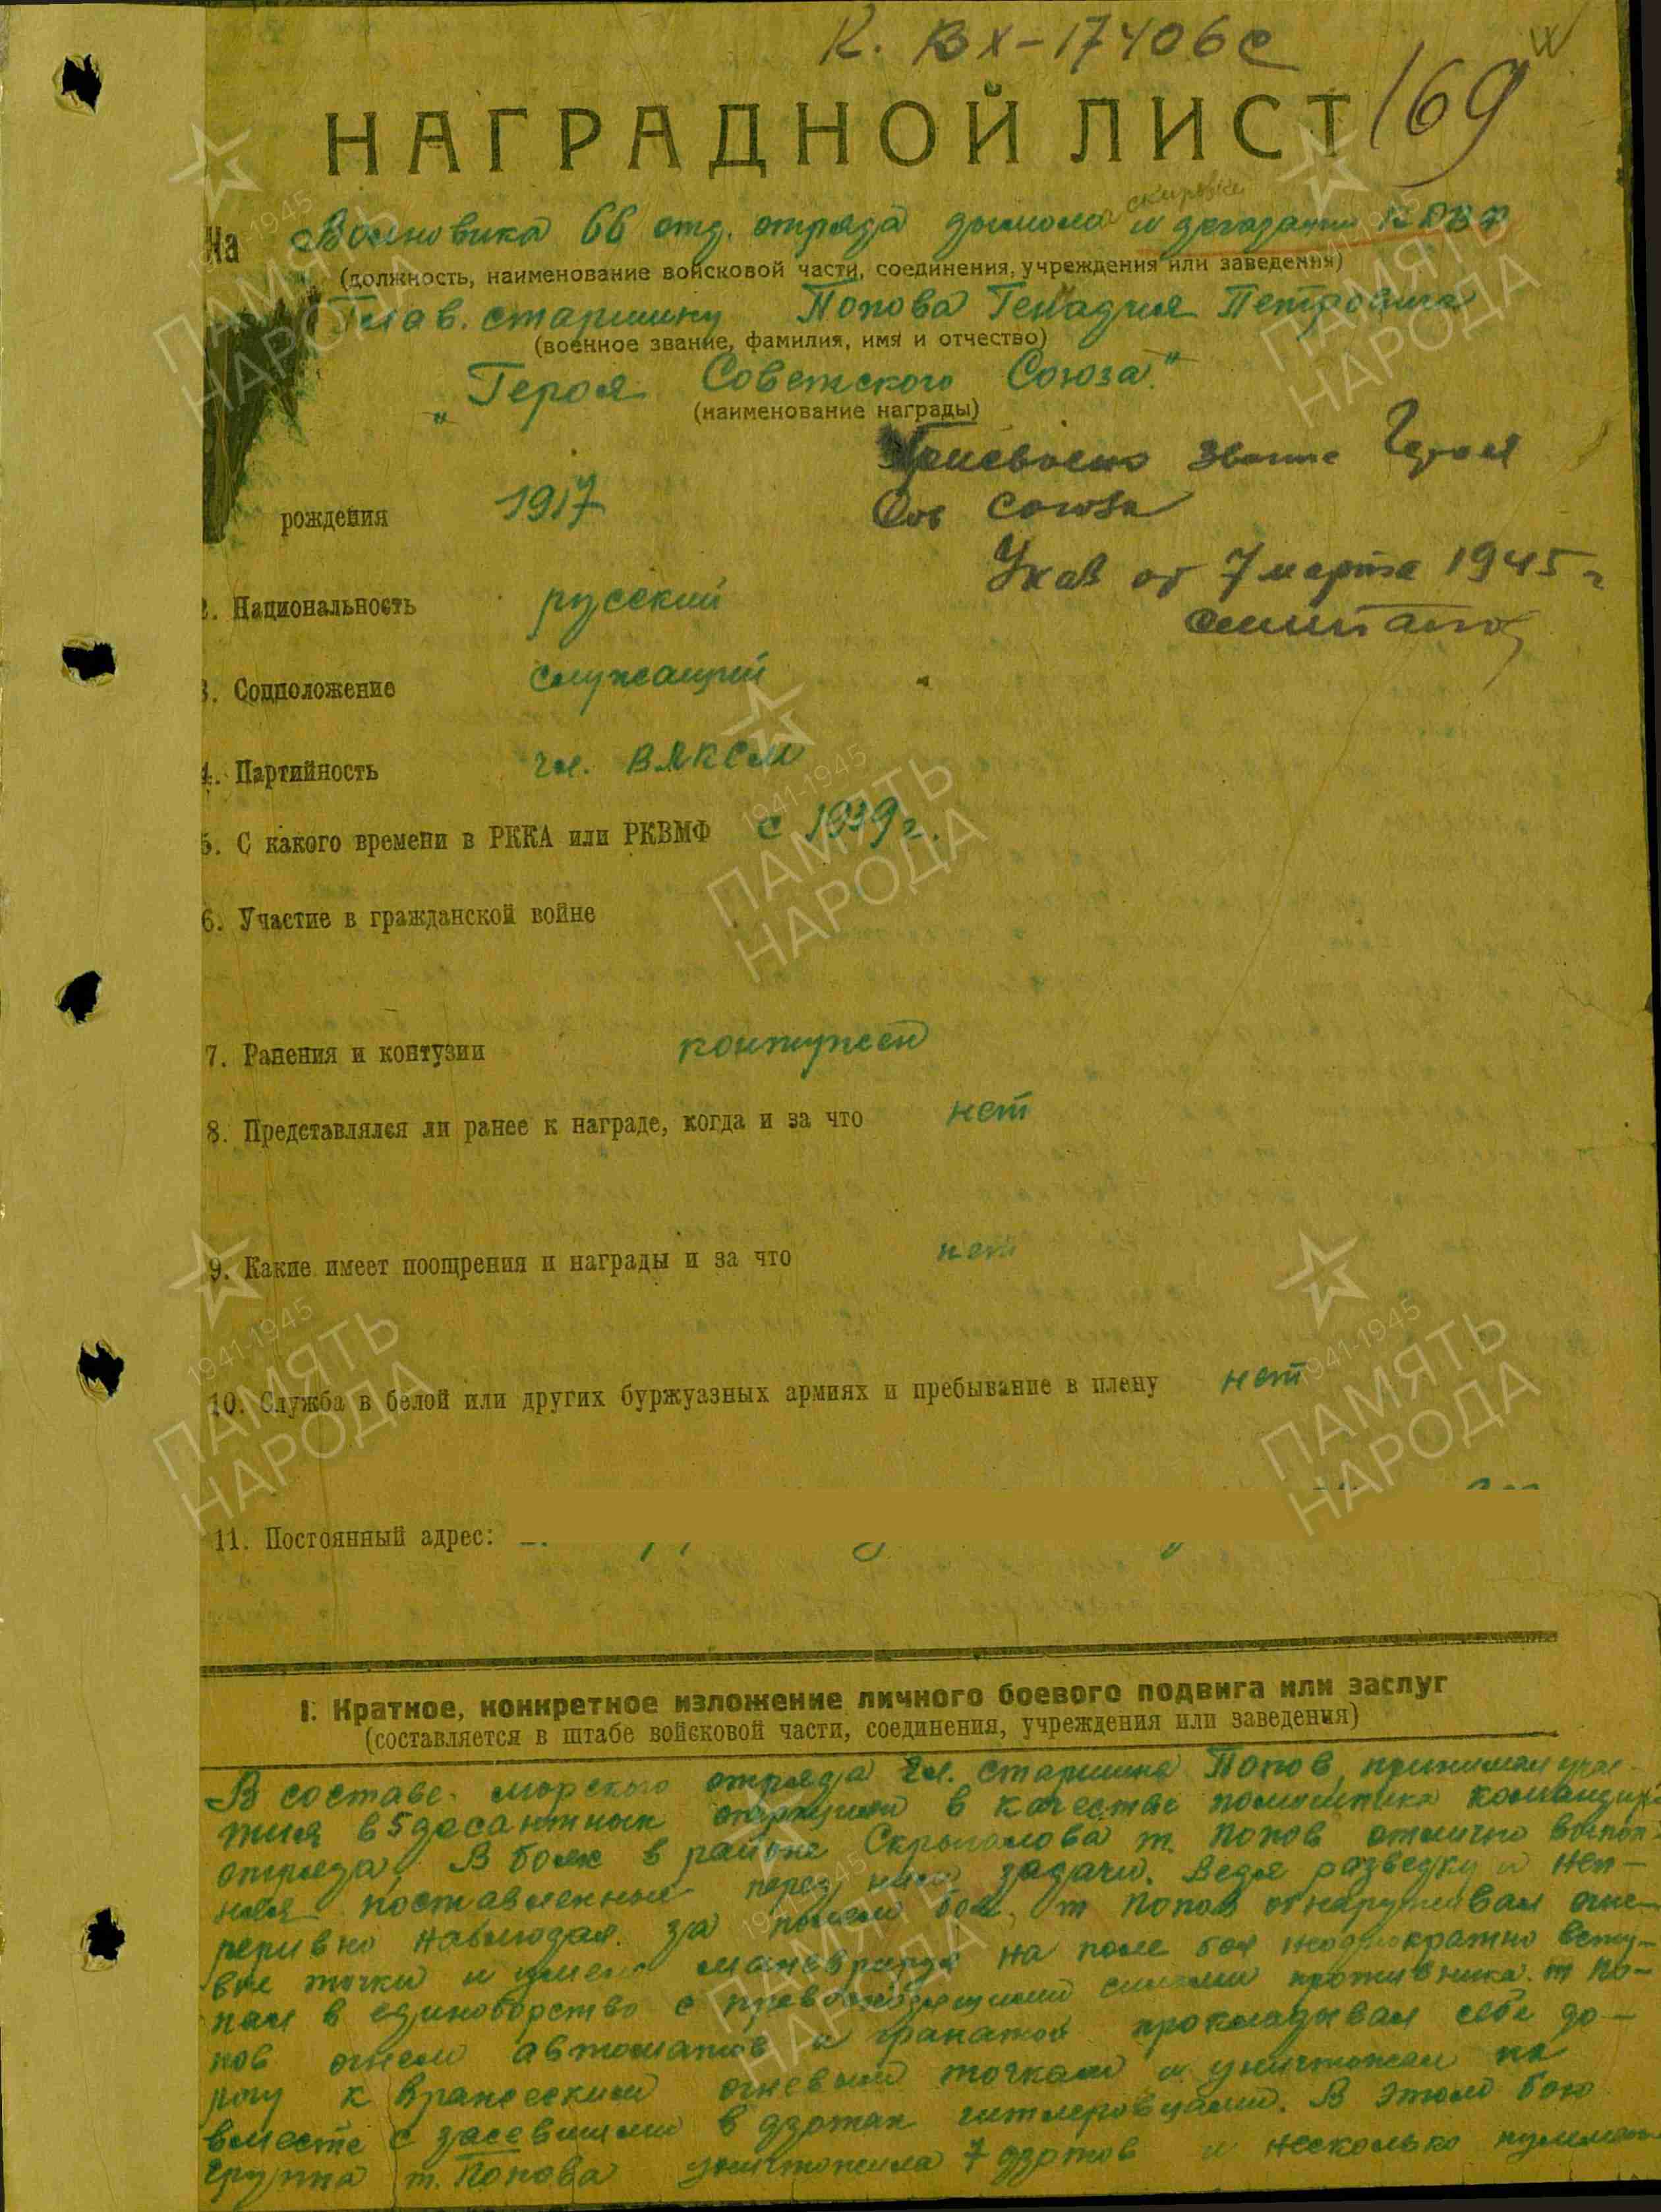 К. ВХ-17406с
169
НАГРАДНОЙ ЛИСТ
скировки
На Боцновика 66 отд. отряда дымома и дегазации К ДВФ
(должность, наименование войсковой части, соединения, учреждения или заведения)
Глав. старшину Попова Генадия Петровича
(военное звание, фамилия, имя и отчество)
„Героя Советского Союза."
(наименование награды)
Присвоено звание Героя
Сов Союза
рождения 1917
Указ от 7 марта 1945 г
2. Национальность русский
3. Соцположение служащий
4. Партийность чл. ВЛКСМ
5. С какого времени в РККА или РКВМФ с 1939 г.
6. Участие в гражданской войне
7. Ранения и контузии контужен
8. Представлялся ли ранее к награде, когда и за что нет
9. Какие имеет поощрения и награды и за что нет
10. Служба в белой или других буржуазных армиях и пребывание в плену нет
11. Постоянный адрес:
I. Краткое, конкретное изложение личного боевого подвига или заслуг
(составляется в штабе войсковой части, соединения, учреждения или заведения)
В составе морского отряда гл. старшина Попов, принимал учас-
тия в 5 десантных операциях в качестве помощника командира
отряда. В боях в районе Скрыголова т. Попов отлично выпол-
нял поставленные перед ним задачи. Ведя разведку и неп-
рерывно наблюдая за полем боя, т Попов обнаруживал огне-
вые точки и умело маневрируя на поле боя неоднократно всту-
пал в единоборство с превосходящими силами противника. т По-
пов огнем автоматов и гранатой прокладывал себе до-
рогу к вражеским огневым точкам и уничтожал их
вместе с засевшими в дзотах гитлеровцами. В этом бою
группа т. Попова уничтожила 7 дзотов и несколько пулемет
ПАМЯТЬ НАРОДА
1941-1945